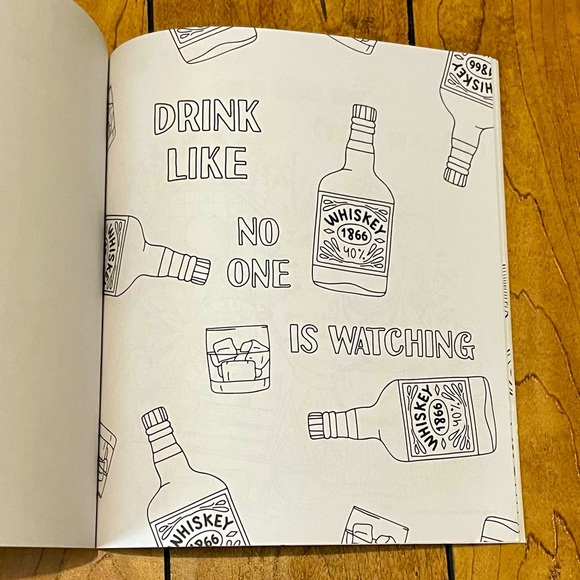 1866
WHISKEY
DRINK
LIKE
WHISKEY
1866
40%
NO
ONE
WHISKEY
IS WATCHING
WHISKEY
1866
40%
WHISKEY
1866